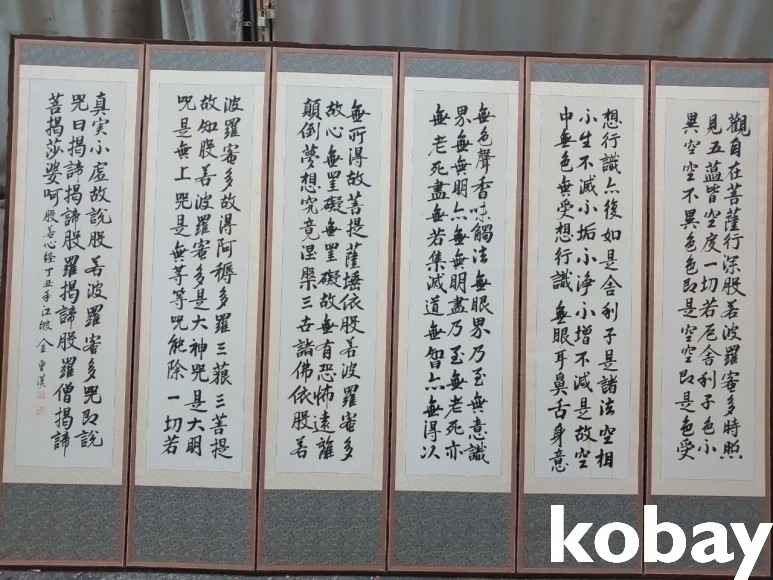 觀自在菩薩行深般若波羅蜜多時照
見五蘊皆空度一切苦厄舍利子色不
異空空不異色色即是空空即是色受
想行識亦復如是舍利子是諸法空相
不生不滅不垢不淨不增不減是故空
中無色無受想行識無眼耳鼻舌身意
無色聲香味觸法無眼界乃至無意識
界無無明亦無無明盡乃至無老死亦
無老死盡無苦集滅道無智亦無得以
無所得故菩提薩埵依般若波羅蜜多
故心無罣礙無罣礙故無有恐怖遠離
顛倒夢想究竟涅槃三世諸佛依般若
波羅蜜多故得阿耨多羅三藐三菩提
故知般若波羅蜜多是大神咒是大明
咒是無上咒是無等等咒能除一切苦
真实不虛故說般若波羅蜜多咒即說
咒曰揭諦揭諦般羅揭諦般羅僧揭諦
菩揭莎婆呵 般若心經 丁丑年
kobay